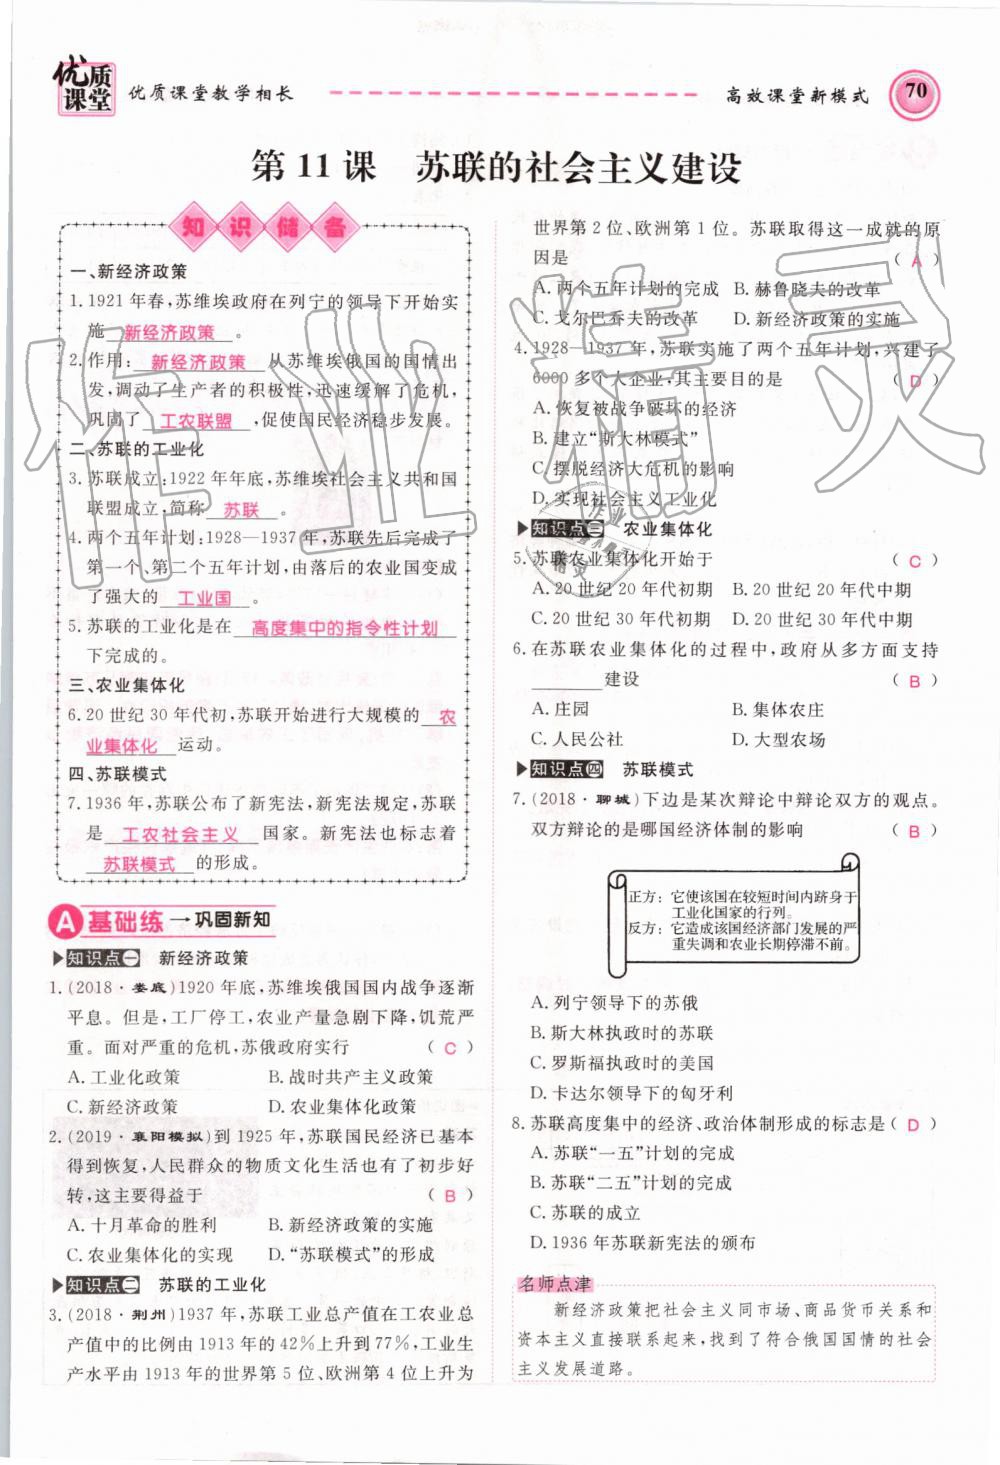 优质课堂
优质课堂教学相长
高效课堂新模式
70
第11课 苏联的社会主义建设
知识储备
一、新经济政策
1.1921年春,苏维埃政府在列宁的领导下开始实
施 新经济政策 。
2.作用: 新经济政策 从苏维埃俄国的国情出
发,调动了生产者的积极性,迅速缓解了危机,
巩固了 工农联盟 ,促使国民经济稳步发展。
二、苏联的工业化
3.苏联成立:1922年年底,苏维埃社会主义共和国
联盟成立,简称 苏联 。
4.两个五年计划:1928—1937年,苏联先后完成了
第一个、第二个五年计划,由落后的农业国变成
了强大的 工业国 。
5.苏联的工业化是在 高度集中的指令性计划
下完成的。
三、农业集体化
6.20世纪30年代初,苏联开始进行大规模的 农
业集体化 运动。
四、苏联模式
7.1936年,苏联公布了新宪法,新宪法规定,苏联
是 工农社会主义 国家。新宪法也标志着
苏联模式 的形成。
A 基础练 → 巩固新知
知识点一 新经济政策
1.(2018·娄底)1920年底,苏维埃俄国国内战争逐渐
平息。但是,工厂停工,农业产量急剧下降,饥荒严
重。面对严重的危机,苏俄政府实行 ( C )
A.工业化政策 B.战时共产主义政策
C.新经济政策 D.农业集体化政策
2.(2019·襄阳模拟)到1925年,苏联国民经济已基本
得到恢复,人民群众的物质文化生活也有了初步好
转,这主要得益于 ( B )
A.十月革命的胜利 B.新经济政策的实施
C.农业集体化的实现 D.“苏联模式”的形成
知识点二 苏联的工业化
3.(2018·荆州)1937年,苏联工业总产值在工农业总
产值中的比例由1913年的42%上升到77%,工业生
产水平由1913年的世界第5位、欧洲第4位上升为
世界第2位、欧洲第1位。苏联取得这一成就的原
因是 ( A )
A.两个五年计划的完成 B.赫鲁晓夫的改革
C.戈尔巴乔夫的改革 D.新经济政策的实施
4.1928—1937年,苏联实施了两个五年计划,兴建了
6000多个大企业,其主要目的是 ( D )
A.恢复被战争破坏的经济
B.建立“斯大林模式”
C.摆脱经济大危机的影响
D.实现社会主义工业化
知识点三 农业集体化
5.苏联农业集体化开始于 ( C )
A.20世纪20年代初期 B.20世纪20年代中期
C.20世纪30年代初期 D.20世纪30年代中期
6.在苏联农业集体化的过程中,政府从多方面支持
________建设 ( B )
A.庄园 B.集体农庄
C.人民公社 D.大型农场
知识点四 苏联模式
7.(2018·聊城)下边是某次辩论中辩论双方的观点。
双方辩论的是哪国经济体制的影响 ( B )
正方:它使该国在较短时间内跻身于
工业化国家的行列。
反方:它造成该国经济部门发展的严
重失调和农业长期停滞不前。
A.列宁领导下的苏俄
B.斯大林执政时的苏联
C.罗斯福执政时的美国
D.卡达尔领导下的匈牙利
8.苏联高度集中的经济、政治体制形成的标志是( D )
A.苏联“一五”计划的完成
B.苏联“二五”计划的完成
C.苏联的成立
D.1936年苏联新宪法的颁布
名师点津
新经济政策把社会主义同市场、商品货币关系和
资本主义直接联系起来,找到了符合俄国国情的社会
主义发展道路。
作业精灵